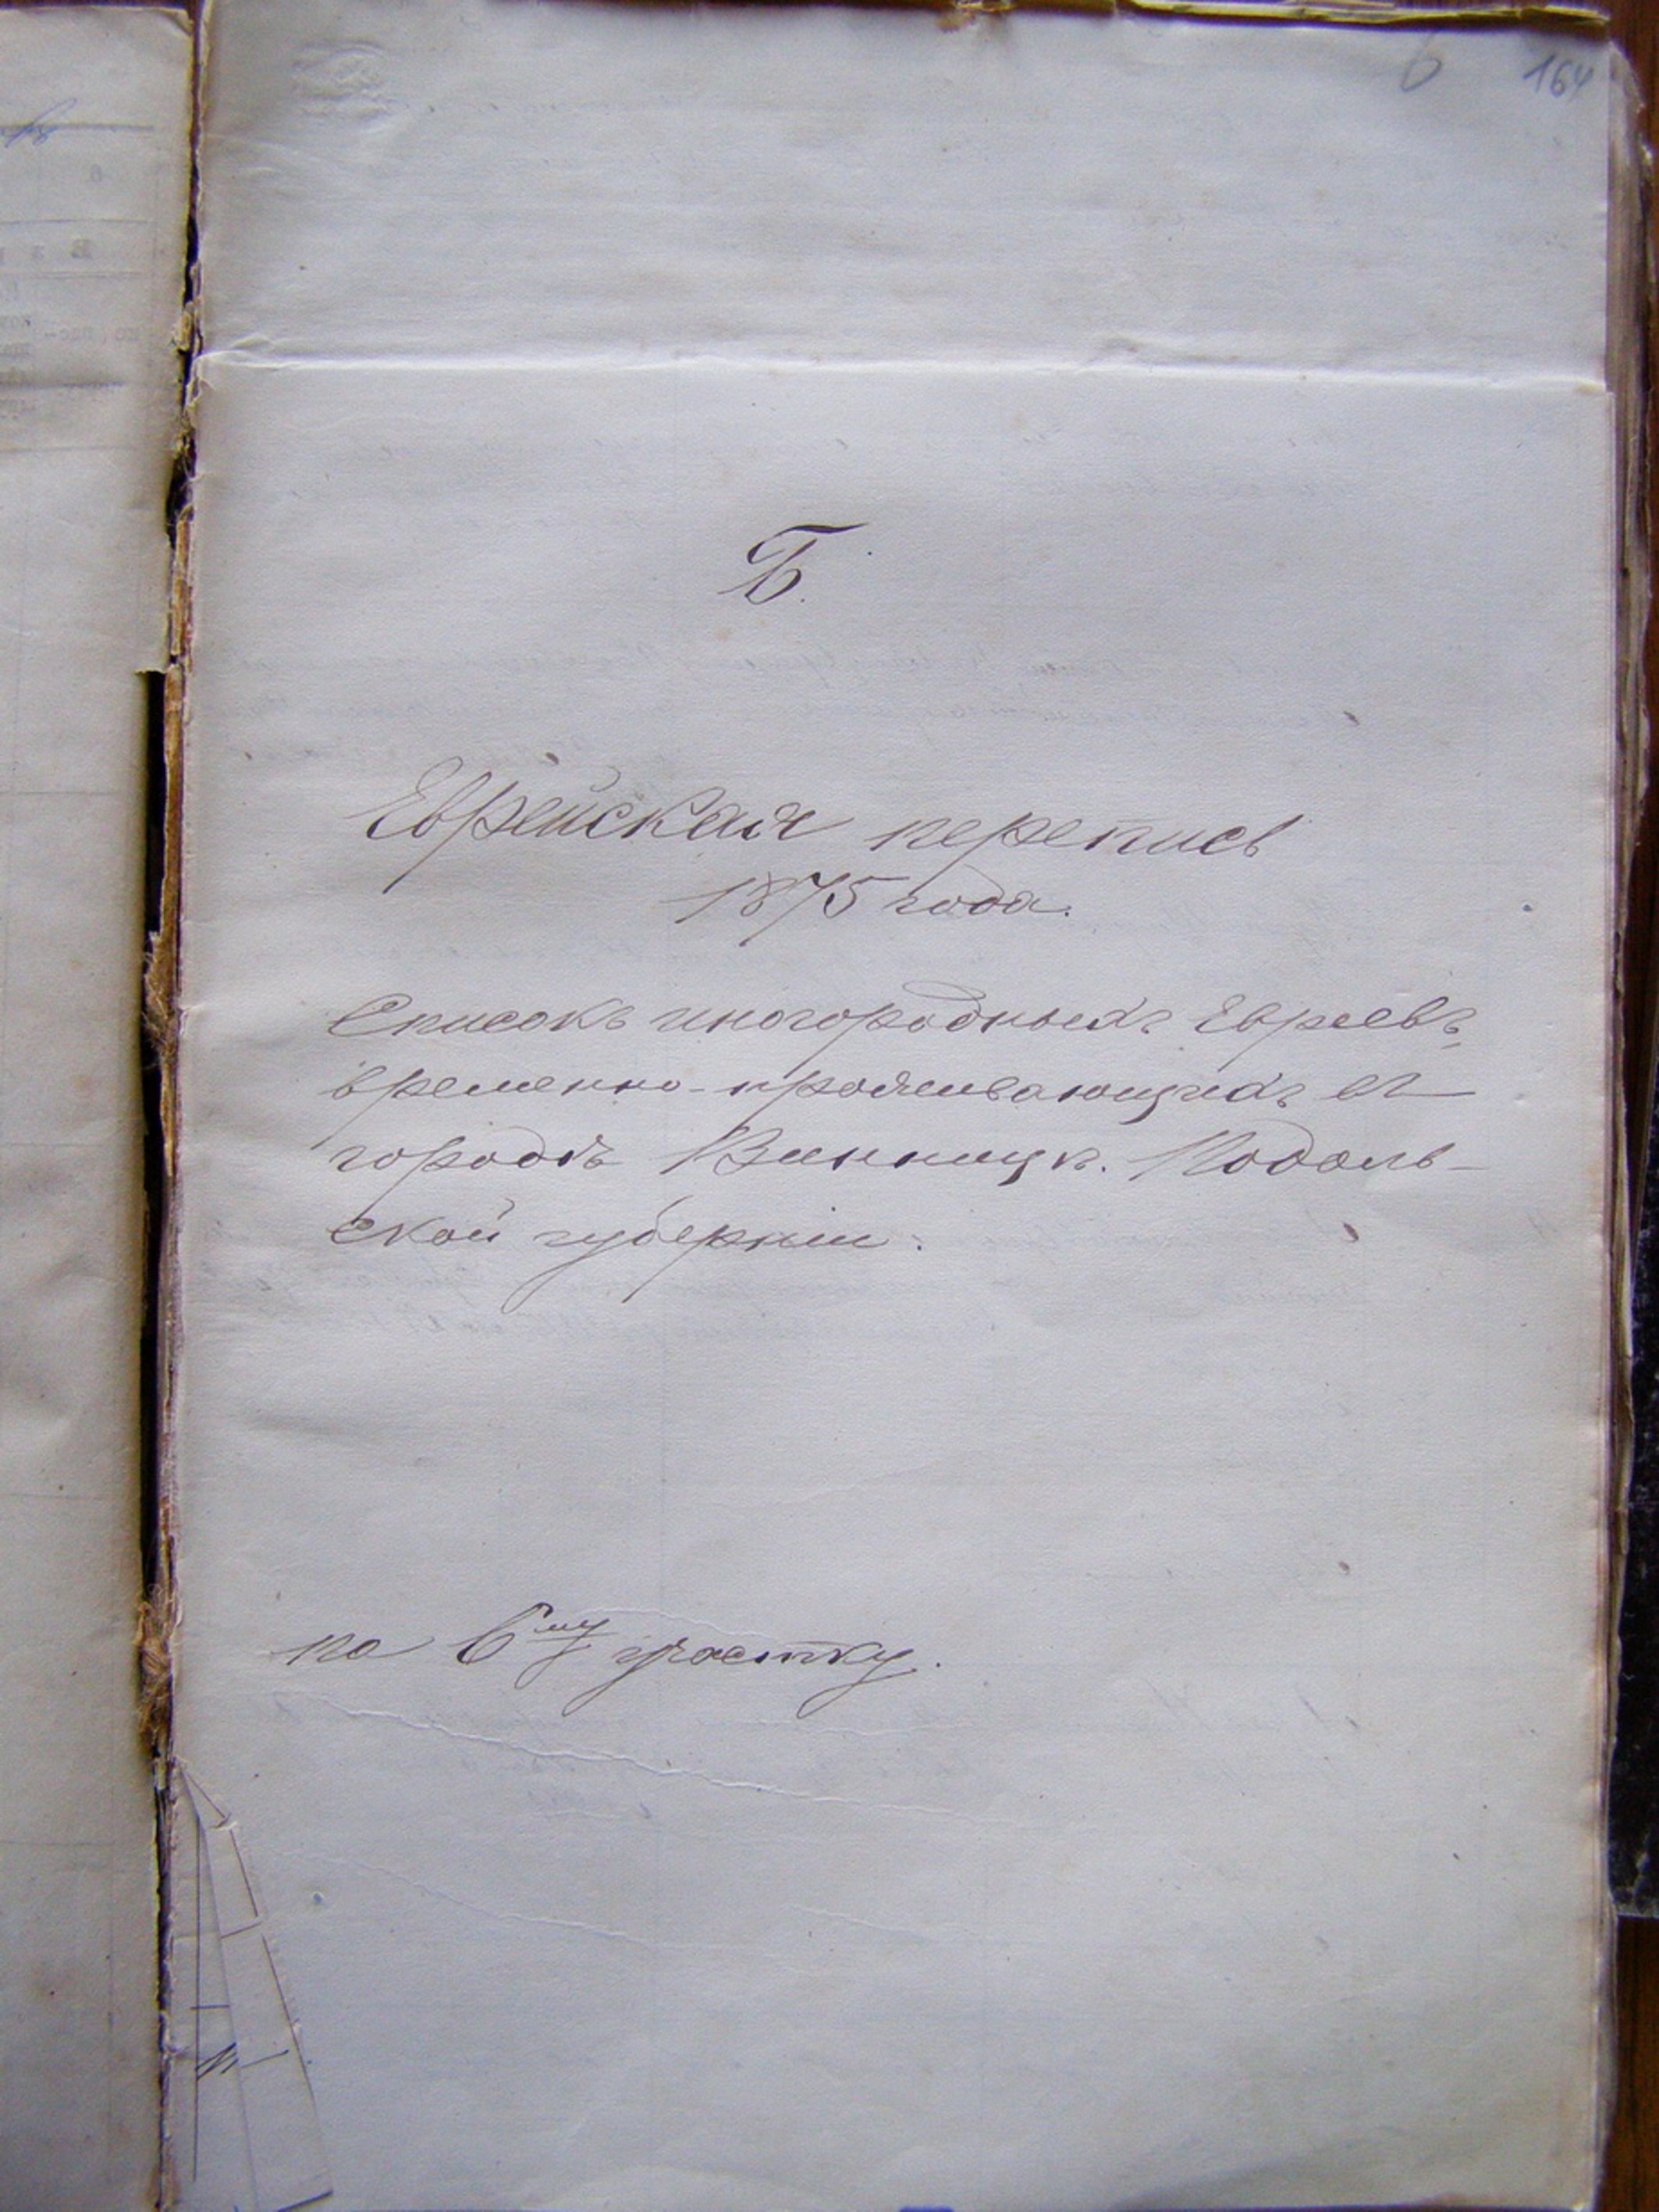 6 164
Б.
Еврейская перепись
1875 года.
Списокъ иногородныхъ Евреевъ,
временно-проживающихъ въ
городѣ Винницѣ. Подоль-
ской губерніи.
по 6му участку.